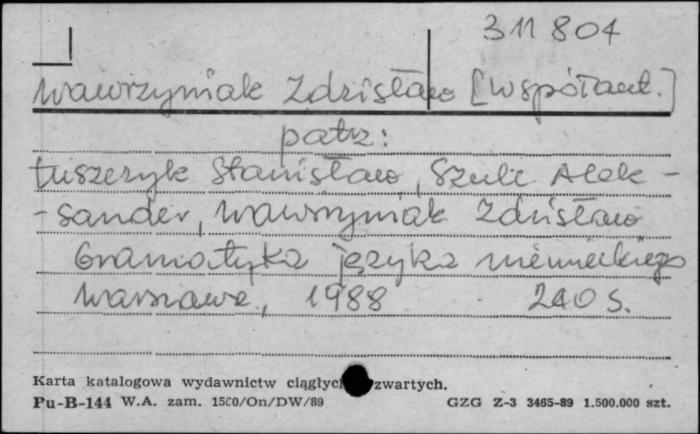 311804
Wawrzyniak Zdzisław [współaut.]
patrz:
Łuszczyk Stanisław, Szulc Alek-
-sander, Wawrzyniak Zdzisław
Gramatyka języka niemieckiego
Warszawa, 1988 240 s.
Karta katalogowa wydawnictw ciągłych zwartych.
Pu-B-144 W.A. zam. 1560/On/DW/89 GZG Z-3 3465-89 1.500.000 szt.